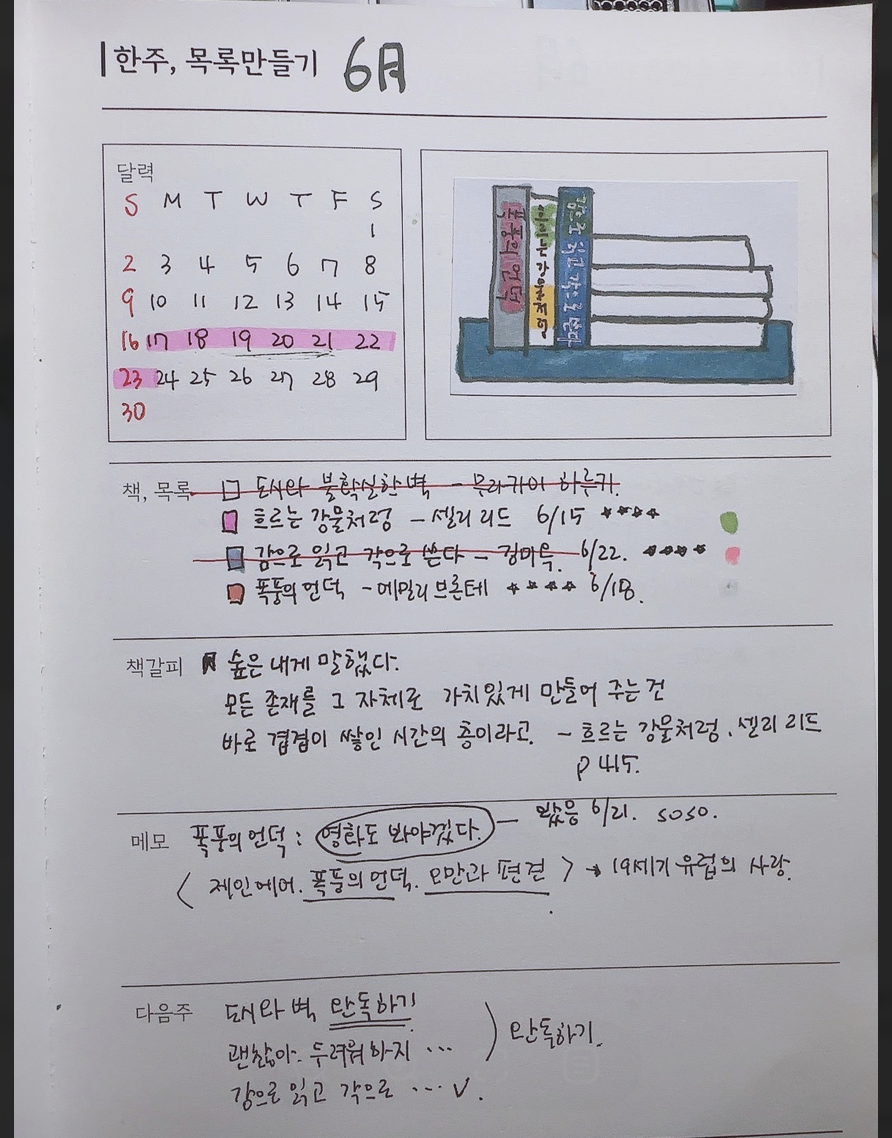 한주, 목록만들기 6月
달력
S M T W T F S
1
2 3 4 5 6 7 8
9 10 11 12 13 14 15
16 17 18 19 20 21 22
23 24 25 26 27 28 29
30
폭풍의 언덕
흐르는 강물처럼
감으로 읽고 각으로 쓴다
책, 목록 도시와 불확실한 벽 - 무라카미 하루키.
흐르는 강물처럼 - 셸리 리드 6/15
감으로 읽고 각으로 쓴다 - 김미옥. 6/22.
폭풍의 언덕 - 에밀리 브론테 6/18.
책갈피 숲은 내게 말했다.
모든 존재를 그 자체로 가치있게 만들어 주는 건
바로 겹겹이 쌓인 시간의 층이라고. - 흐르는 강물처럼. 셸리 리드
p 415.
메모 폭풍의 언덕 : 영화도 봐야겠다. - 봤음 6/21. soso.
< 제인에어. 폭풍의 언덕. 오만과 편견 > → 19세기 유럽의 사랑.
다음주 도시와 벽 완독하기
괜찮아. 두려워하지 ... ) 완독하기.
감으로 읽고 각으로 ... v.